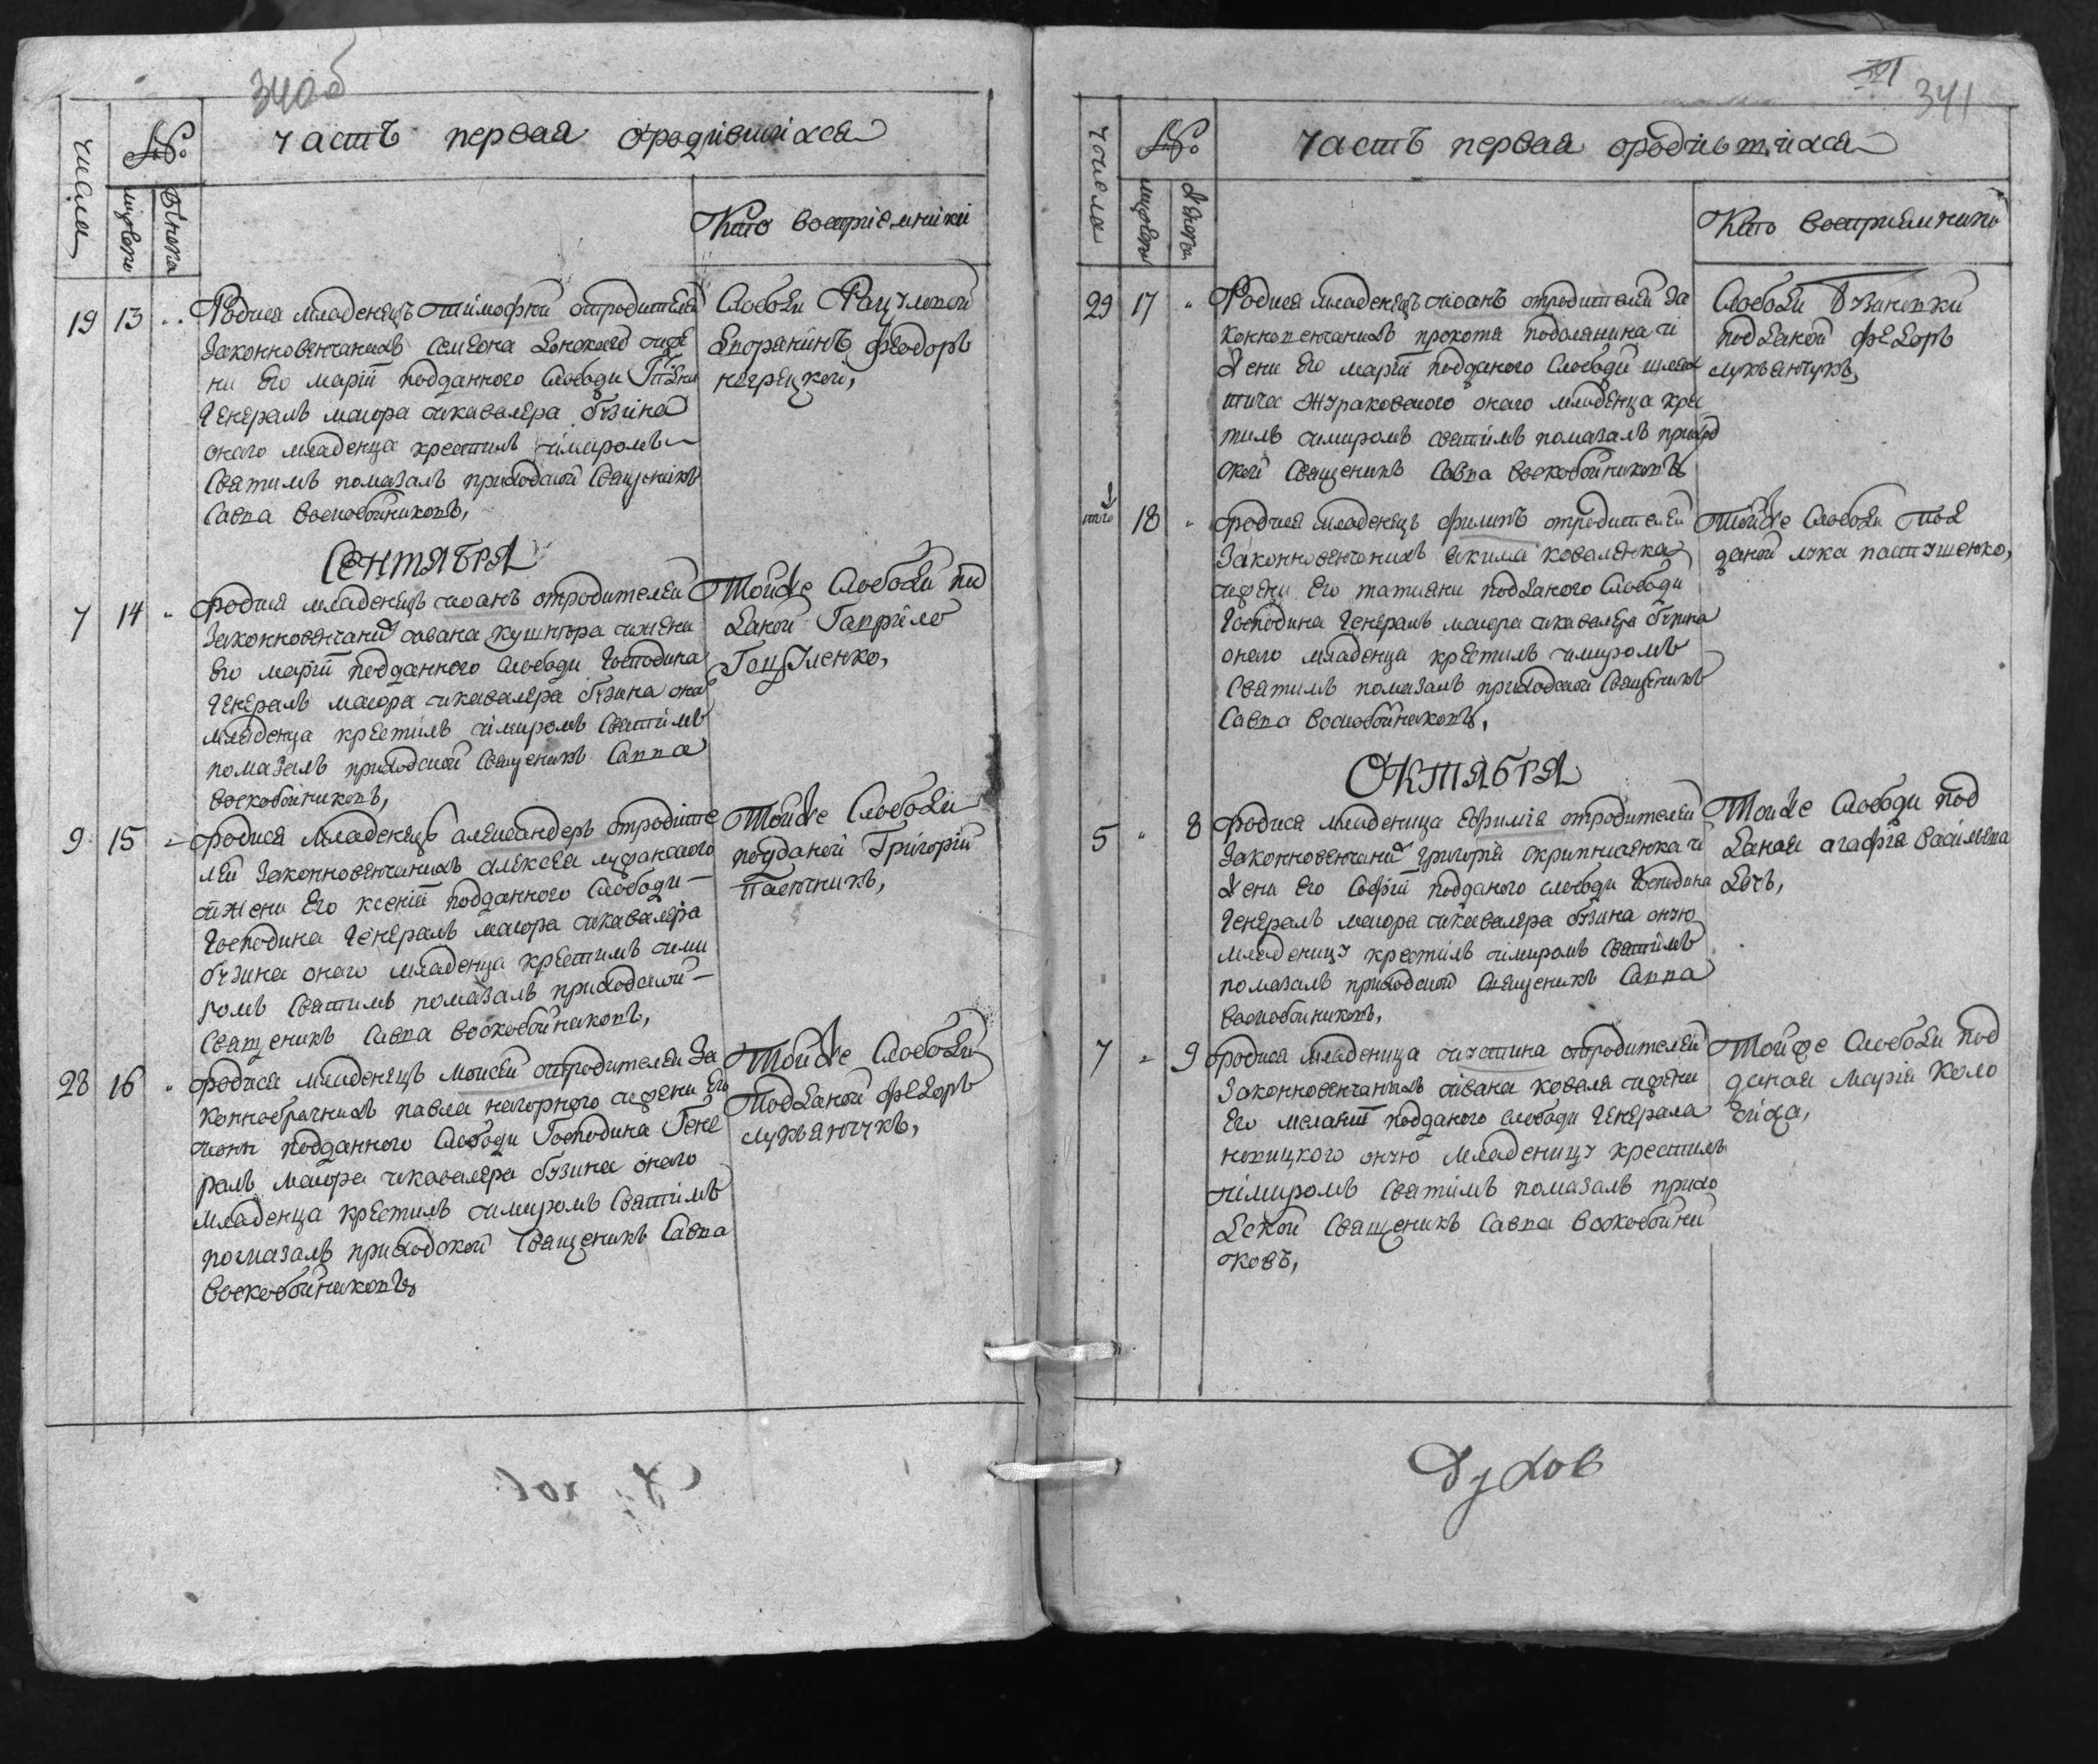 340б
часть первая ородившихся
числа
№
мужеска
женска
Кто восприемники
19 13 Родися младенецъ тимофей отродителей
законновенчанихъ семиона
ни его марiи подданного слободи
генералъ маиора икавалера бузина
онаго младенца крестилъ имиромъ
святимъ помазалъ приходской священикъ
савва воскобойниковъ,
слободи
дворянинъ феодоръ
негрецкой,
Сентября
7 14 родися младенецъ иоанъ отродителей
законновенчаних ивана кушнера ижени
его марiи подданного слободи господина
генералъ маиора икавалера бузина она
младенца крестилъ имиромъ святимъ
помазалъ приходской священикъ савва
воскобойниковъ,
Тойже слободи под
даной Гаврило
Гоцуленко,
9 15 родися младенецъ александеръ отродите
лей законновенчанихъ алексея
ижени его ксенiи подданного слободи
господина генералъ маиора икавалера
бузина онаго младенца крестилъ ими
ромъ святимъ помазалъ приходской
священикъ савва воскобойниковъ,
Тойже слободи
подданой Григорiй
пасечникъ,
28 16 родися младенецъ моисей отродителей за
коннобрачнихъ павла нагорного ижени его
подданного слободи Господина Гене
ралъ маиора икавалера бузина онаго
младенца крестилъ имиромъ святимъ
помазалъ приходской священикъ савва
воскобойниковъ
Тойже слободи
подданой федоръ
лукьянчукъ,
341
часть первая ородившихся
числа
№
мужеска
женска
Кто восприемники
29 17 Родися младенецъ иоанъ отродителей за
конновенчанихъ прокопа подолянина и
жени его марiи подданого слободи шлях
тича жураковского онаго младенца крес
тилъ имиромъ святимъ помазалъ приход
ской священикъ савва воскобойниковъ
слободи бузиновки
подданой федоръ
лукьянчукъ,
того 18 родися младенецъ филипъ отродителей
законновенчанихъ якима коваленка
ижени его татияни подданого слободи
господина генералъ маиора икавалера бузина
онаго младенца крестилъ имиромъ
святимъ помазалъ приходской священикъ
савва воскобойниковъ,
тойже слободи под
даной лука пастушенко,
Октября
5 8 родися младеница ефимiя отродителей
законновенчаних григорiя скрипниченка и
жени его софiи подданого слободи господина
генералъ маиора икавалера бузина оную
младеницу крестилъ имиромъ святимъ
помазалъ приходской священикъ савва
воскобойниковъ,
Тойже слободи под
даная агафiя василева
дочь,
7 9 родися младеница иустина отродителей
законновенчанихъ ивана коваля ижени
его меланiи подданого слободи генерала
оную младеницу крестилъ
имиромъ святимъ помазалъ прихо
дской священикъ савва воскобойни
ковъ,
Тойже слободи под
даная марiя коло
Духов